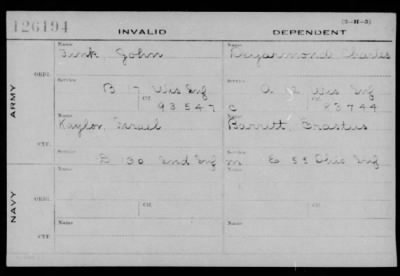 126194
(3-H-5)
INVALID DEPENDENT
ARMY
ORIG.
Name
Funk, John
Service
B 17 Wis Inf
Ctf.
93547
Name
Degarmond, Charles
Service
A 2 Wis Inf
C Ctf. 83744
CTF.
Name
Kaylor, Israel
Service
D 130 Ind Inf
Name
Barrett, Erastus
Service
M E 55 Ohio Inf
NAVY
ORIG.
Name
Ctf.
Name
Ctf.
CTF.
Name
Name